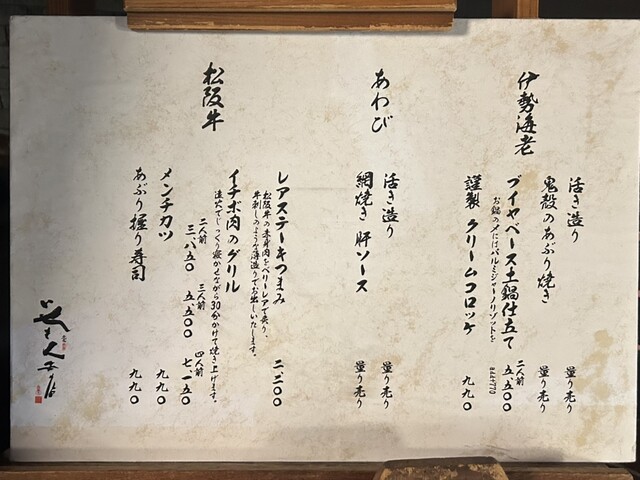 伊勢海老
活き造り 量り売り
鬼殻のあぶり焼き 量り売り
ブイヤベース土鍋仕立て 二人前 五、五〇〇
お鍋の〆にはパルミジャーノリゾットを
謹製 クリームコロッケ 九九〇
あわび
活き造り 量り売り
網焼き 肝ソース 量り売り
松阪牛
レアステーキつまみ 二、二〇〇
松阪牛の赤身肉をベリーレアで炙り、
牛刺しのような薄造りでお出しいたします。
イチボ肉のグリル
遠火でじっくり寝かせながら30分かけて焼き上げます。
二人前 三、八五〇 三人前 五、五〇〇 四人前 七、一五〇
メンチカツ 九九〇
あぶり握り寿司 九九〇